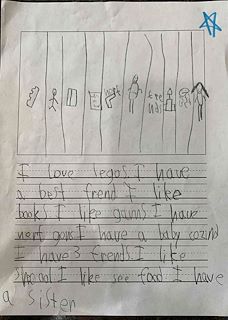 fre
nds
I love legos. I have
a best frend I like
books I like games I have
nerf guns I have a baby cozind
I have 3 frends. I like
I like see food. I have
a Sister